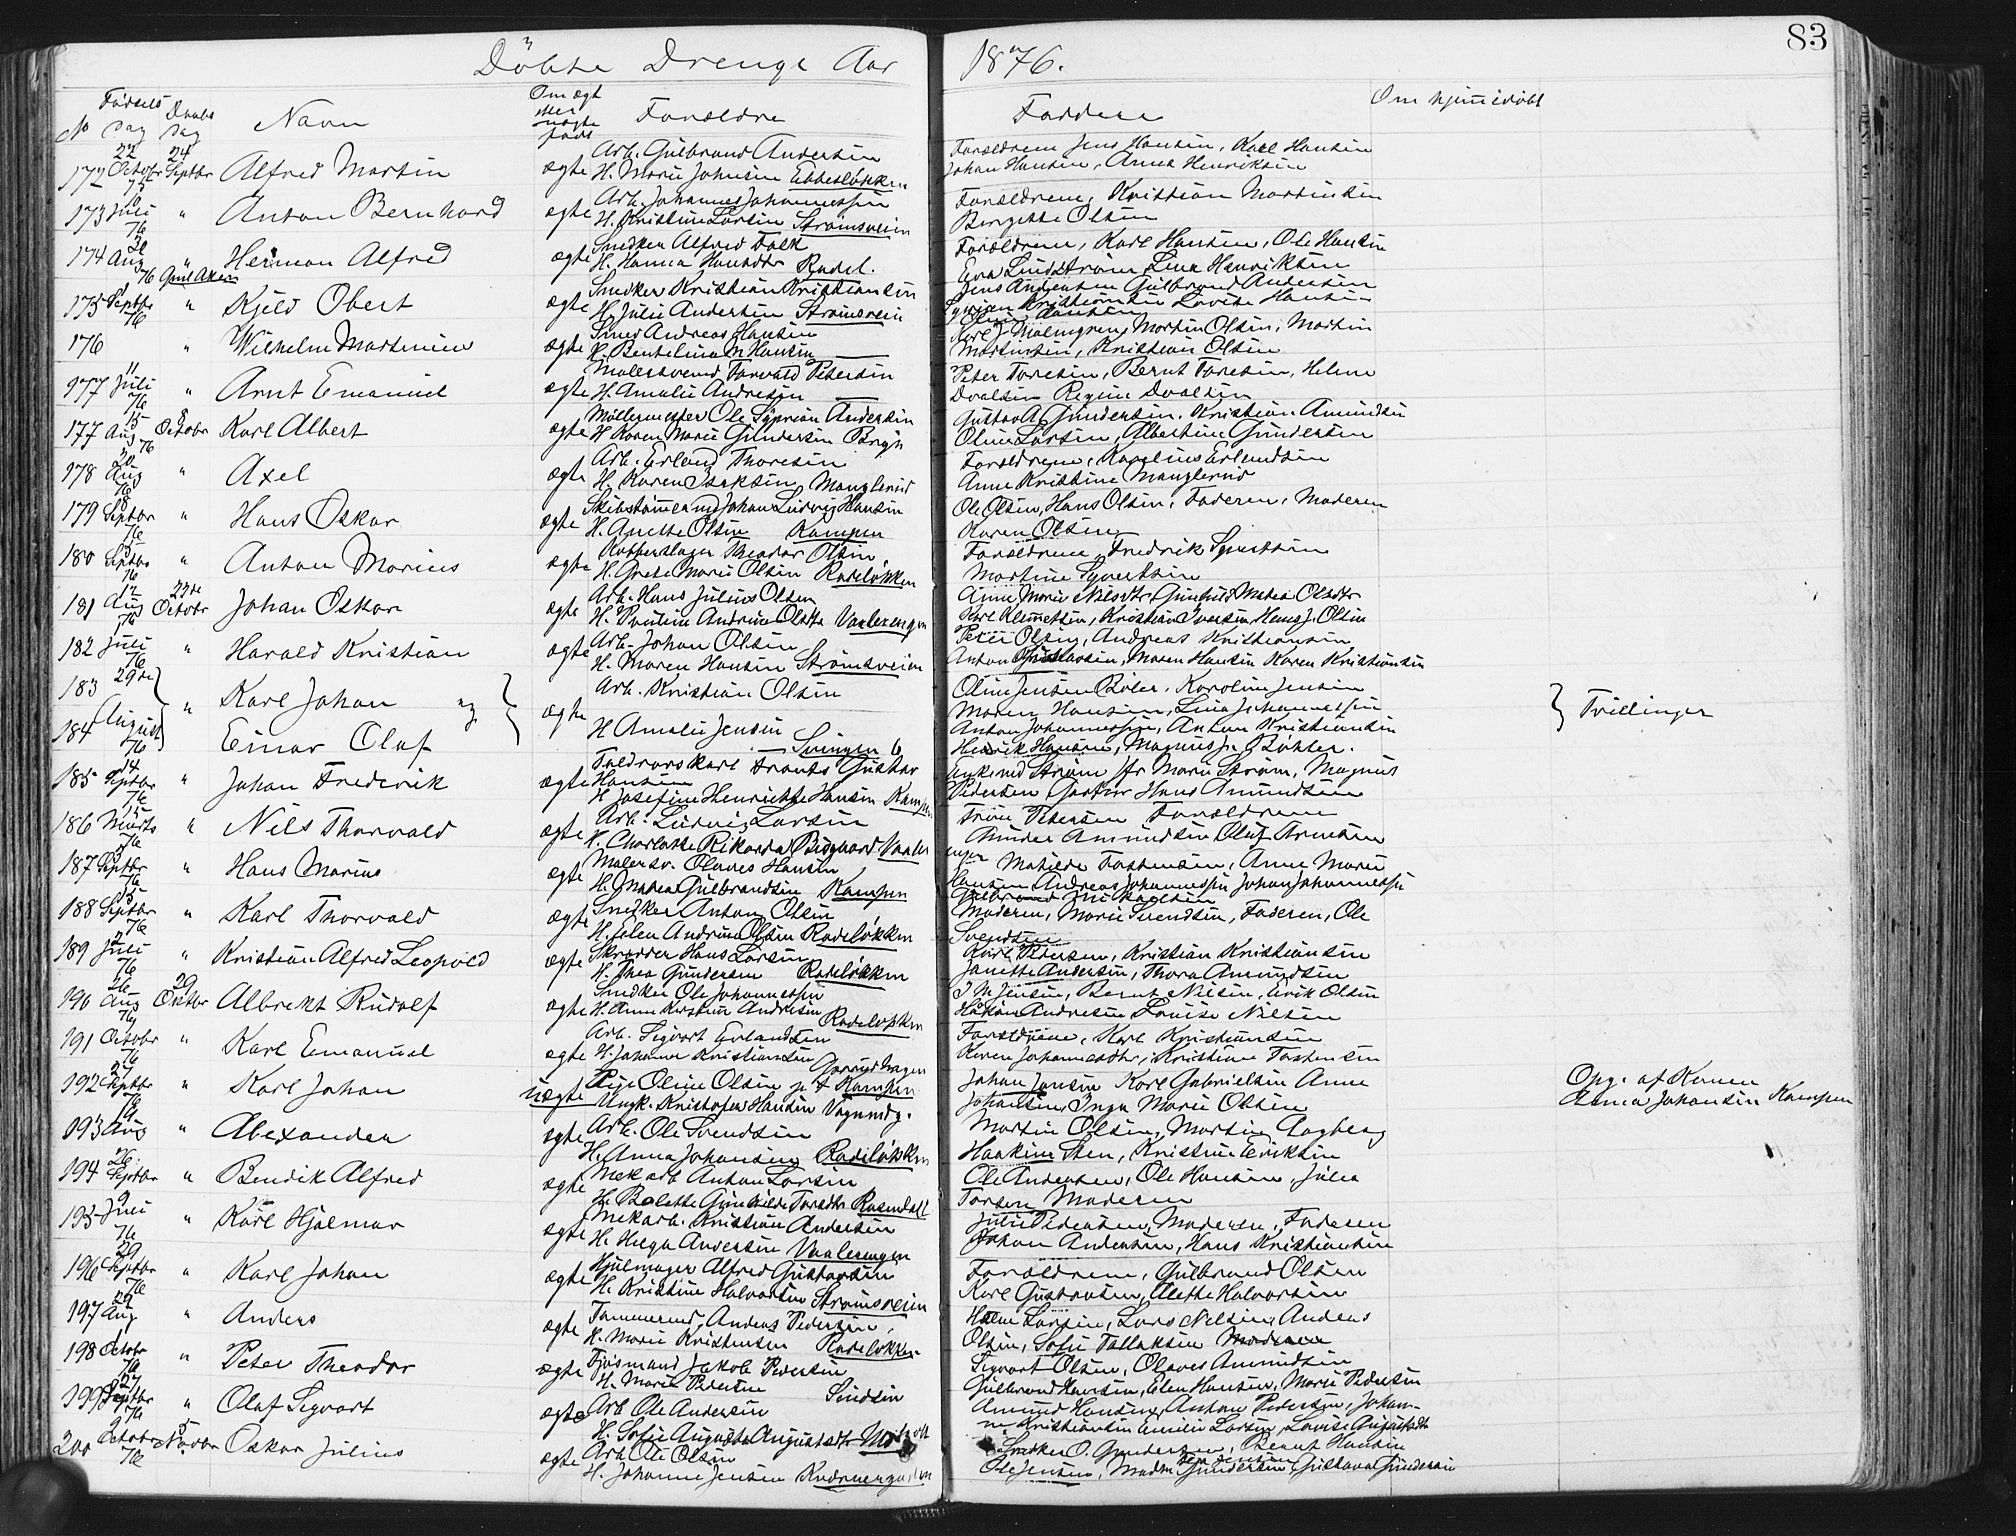 83
Döbte Drenge Aar 1876.
No Födsels Dag Daabs Dag Navn Om ægt eller uægte född Foreldre Faddere Om hjemmedöbt
172 22 Octobr 75 24 Septbr Alfred Martin ægte Arb. Gulbrand Andersen
H. Marie Johnsen Ebbesløkken
Foreldrene Jens Hansen, Karl Hansen
Johan Hansen, Anna Henriksen
173 Juli 76 " Anton Bernhard ægte Arb. Johannes Johannessen
H. Kristine Larsen Strømsveien
Foreldrene, Kristian Martinsen
Birgitte Olsen
174 Aug 76 " Herman Alfred ægte Snedker Alfred Falk
H. Hanna Hansdtr Rødel.
Foreldrene, Karl Hansen, Ole Hansen
Eva Lindstrøm Lina Henriksen
175 Septbr 76 " Kjeld Obert ægte Snedker Kristian Kristiansen
H. Julie Andersen Strømsveien
Jens Andersen Gulbrand Andersen
Kristiansen Lovise Hansen
176 " Wilhelm Martinius ægte Smed Andreas Hansen
H. Bentelina M Hansen
Karl J Malmgren, Martin Olsen, Martin
Martinsen, Kristian Olsen
177 11 Juli 76 " Arnt Emanuel ægte Malersvend Torvald Petersen
H. Amalie Andresen
Peter Toresen, Bernt Toresen, Helene
Doalsen Regine Doalsen
177 15 Aug 76 8 Octobr Karl Albert ægte Møllermester Ole Syprian Andersen
H Karen Marie Gundersen Bryn
Gustav A Gundersen, Kristian Amundsen
Oline Larsen, Albertine Gundersen
178 20 Aug 76 " Axel ægte Arb. Erland Thoresen
H. Karen Isaksen Manglerud
Foreldrene, Karelius Erlandsen
Anne Kristine Manglerud
179 18 Septbr 76 " Hans Oskar ægte Skibstømmermd Johan Ludvig Hansen
H. Anette Olsen Kampen
Ole Olsen, Hans Olsen, Faderen, Moderen
Karen Olsen
180 Septbr 76 " Anton Marius ægte Kobberslager Theodor Olsen
H. Grete Marie Olsen Rodeløkken
Foreldrene, Fredrik Syvertsen
Martine Syvertsen
181 12 Aug 76 22de Octobr Johan Oskar ægte Arb. Hans Julius Olsen
H. Pauline Andrine Olsdtr Vaalerengen
Anne Marie Nilsdtr Gunhild Matea Olsdtr
Karl Klemetsen, Kristian Iversen Hans J. Olsen
182 Juli 76 " Harald Kristian ægte Arb. Johan Olsen
H. Maren Hansen Strømsveien
Peter Olsen, Andreas Kristiansen
Anton Gustavsen, Maren Hansen Karen Kristiansen
183 29de " Karl Johan og ægte Arb. Kristian Olsen
Oline Jensen Bøler, Karoline Jensen
Maren Hansen, Lina Johannessen
Tvillinger
184 August 76 Einar Olaf H Amalie Jensen
Svingen 6
Anton Johannessen, Anton Kristiansen
Henrik Hansen, Magnus J. Bøhler.
185 14 Septbr 76 " Johan Frederik ægte Foldrorskarl Frants Gustav
Hansen
H Josefine Henriette Hansen Kampen
Enkemd Strøm Jfr Marie Strøm, Magnus
Pedersen Gartner Hans Amundsen
186 15 Marts 76 " Nils Thorvald ægte Arb. Ludvig Larsen
H. Charlotte Rikarda Bisgaard Vaaler
engen
Trine Petersen Foreldrene
Gunder Amundsen Oluf Arnesen
187 Septbr 76 " Hans Marius ægte Malersv. Olaves Hansen
H. Maren Gulbrandsen Kampen
Matilde Torstensen, Anne Marie
Hansen Andreas Johannessen Johan Johannessen
Gulbrand Mikkelsen
188 15 Septbr 76 " Karl Thorvald ægte Snedker Anton Olsen
H. Helen Andrine Olsen Rodeløkken
Moderen, Marie Svendsen, Faderen, Ole
Svendsen
189 Juli 76 " Kristian Alfred Leopold ægte Skrædder Hans Larsen
H. Thea Gundersen Rodeløkken
Karl Pedersen, Kristian Kristiansen
Janette Andersen, Thora Amundsen
190 26 Aug 76 29 Octobr Albrekt Rudolf ægte Snedker Ole Johannessen
H. Anne Kirstine Andresen Rodeløkken
J M Jensen, Bernt Nilsen, Erik Olsen
Håkon Andresen Lovise Nilsen
191 Octobr 76 " Karl Emanuel ægte Arb. Sigvart Erlandsen
H. Johanne Kristiansen
Foreldrene, Karl Kristiansen
Karen Johannesdtr, Kristian Torstensen
192 27 Septbr 76 " Karl Johan uægte Pige Oline Olsen Kampen
Ungk. Kristofer Hansen Vognmdg.
Johan Jansen Karl Gabrielsen Anne
Johansen, Inga Marie Olsen
Opg. af Konen
Anna Johansen Kampen
193 19 Aug " Alexander ægte Arb. Ole Svendsen
H. Anna Johansen Rodeløkken
Martin Olsen, Martin Aagberg
Haakine Sten, Kristine Eriksen
194 26 Septbr " Bendik Alfred ægte Mekarb Anton Larsen
H. Bolette Gunhilde Torsdtr Rosendal
Ole Andersen, Ole Hansen, Julia
Torsen Moderen
195 9 Juli 76 " Karl Hjalmar ægte Mekarb. Kristian Andersen
H. Helga Andersen Vaalerengen
Julie Pedersen, Moderen, Faderen
Johan Andersen, Hans Kristiansen
196 29 Septbr 76 " Karl Johan ægte Hjulmager Alfred Gustavsen
H. Kristine Halvorsen Strømsveien
Foreldrene, Gulbrand Olsen
Karl Gustavsen, Alette Halvorsen
197 29 Aug " Anders ægte Tømmermd Anders Pedersen,
H. Marie Kristensen Rodeløkken
Helene Larsen, Lars Nilsen, Anders
Olsen, Sofie Tollaksen Moderen
198 1 Octobr 76 " Peter Theodor ægte Fjøsmand Jakob Pedersen
H. Marie Pedersen Sinsen
Sigvart Olsen, Olaves Amundsen
Gulbrand Hansen, Elen Hansen, Marie Pedersen
199 27 Septbr 76 " Olaf Sigvart ægte Arb Ole Andersen
H. Sofie Augusta Augustsdtr
Amund Hansen, Anton Pedersen, Johan-
ne Kristiansen Emilie Larsen, Lovise Augustsdtr
200 9 Octobr 76 5 Novbr Oskar Julius ægte Arb. Ole Olsen
H. Johanne Jensen
Snedker O. Gundersen, Bernt Hansen
Ole Jensen, Madm Gundersen, Gustava Gundersen